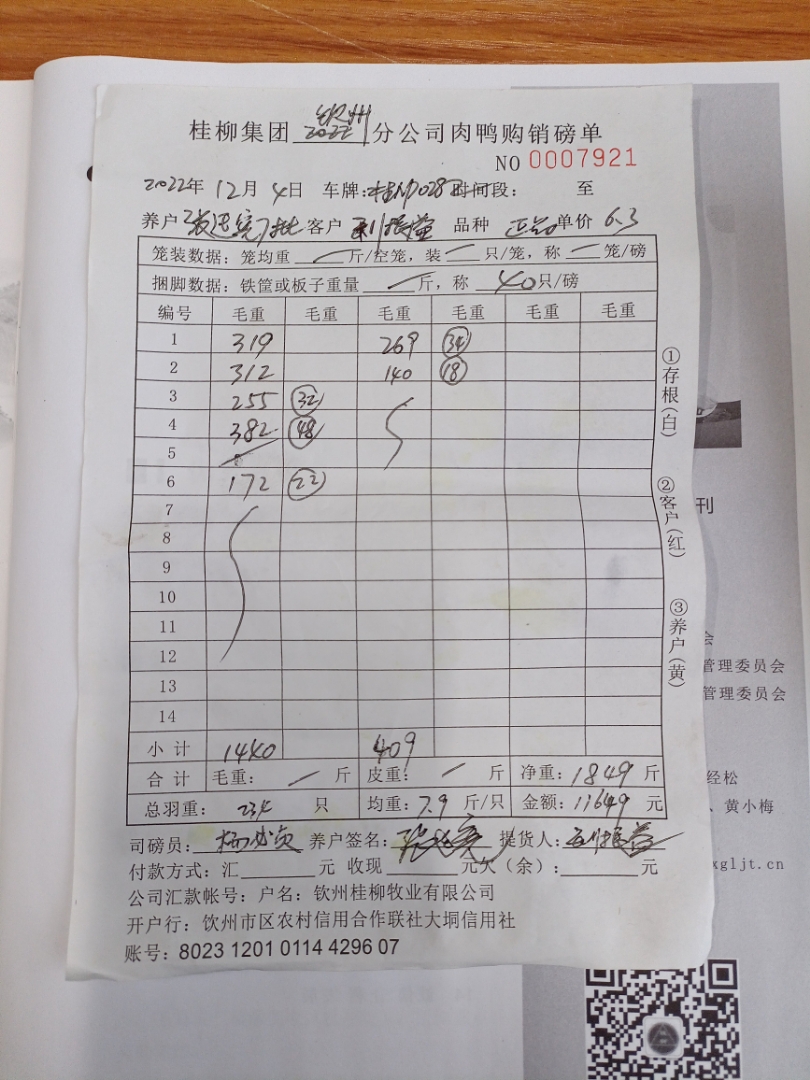 桂柳集团 钦州 分公司肉鸭购销磅单
NO 0007921
2022年 12月 4日 车牌: 时间段: 至
养户 客户 品种 单价 6.3
笼装数据: 笼均重 / 斤/空笼, 装 / 只/笼, 称 / 笼/磅
捆脚数据: 铁筐或板子重量 / 斤, 称 40 只/磅
编号 毛重 毛重 毛重 毛重 毛重 毛重
1 319 269 34
2 312 140 18
3 255 32
4 382 48
5
6 172 22
7
8
9
10
11
12
13
14
小计 1440 409
合计 毛重: / 斤 皮重: / 斤 净重: 1849 斤
总羽重: 234 只 均重: 7.9 斤/只 金额: 11649 元
司磅员: 养户签名: 提货人:
付款方式: 汇 元 收现 元欠(余): 元
公司汇款帐号: 户名: 钦州桂柳牧业有限公司
开户行: 饮州市区农村信用合作联社大垌信用社
账号: 8023 1201 0114 4296 07
①存根(白)
②客户(红)
③养户(黄)
刊
会
管理委员会
管理委员会
经松
、黄小梅
xgljt.cn